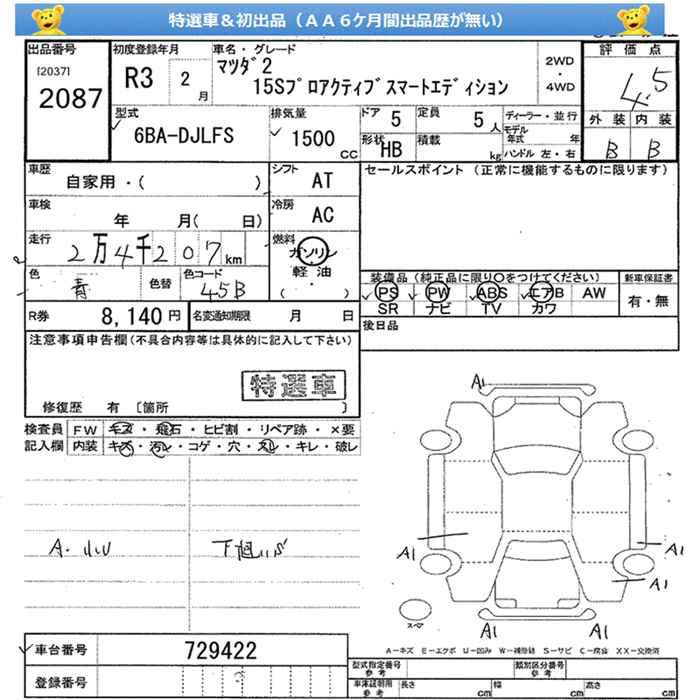 特選車＆初出品（ＡＡ６ケ月間出品歴が無い）
出品番号
[2037]
2087
初度登録年月
R3 2月
車名・グレード
マツダ2
15Sプロアクティブスマートエディション
2WD
・
4WD
評価点
4.5
外装 内装
B B
型式
6BA-DJLFS
排気量
1500 CC
ドア 5
定員 5人
形状 HB
積載 kg
ディーラー・並行
モデル年式 年
ハンドル 左・右
車歴
自家用・( )
シフト AT
車検
年 月( 日)
冷房 AC
走行
2万4千207km
燃料
ガソリン
・
軽油
( )
色
青
色替
色コード
45B
R券 8,140円
名変通知期限 月 日
セールスポイント（正常に機能するものに限ります）
装備品（純正品に限り○をつけてください）
PS PW ABS エアB AW
SR ナビ TV カワ
新車保証書
有・無
後日品
注意事項申告欄(不具合内容等は具体的に記入して下さい)
特選車
修復歴 有 [箇所 ]
検査員
記入欄
FW キズ・飛石・ヒビ割・リペア跡・×要
内装 キズ・汚レ・コゲ・穴・スレ・キレ・破レ
A・小U
A1
A1
A1
A1
A1
スペア
A－キズ E－エクボ U－凹み W－補修跡 S－サビ C－腐食 XX－交換済
車台番号 729422
登録番号
型式指定番号
参考
類別区分番号
参考
車庫証明用
参考
長さ cm 幅 cm 高さ cm